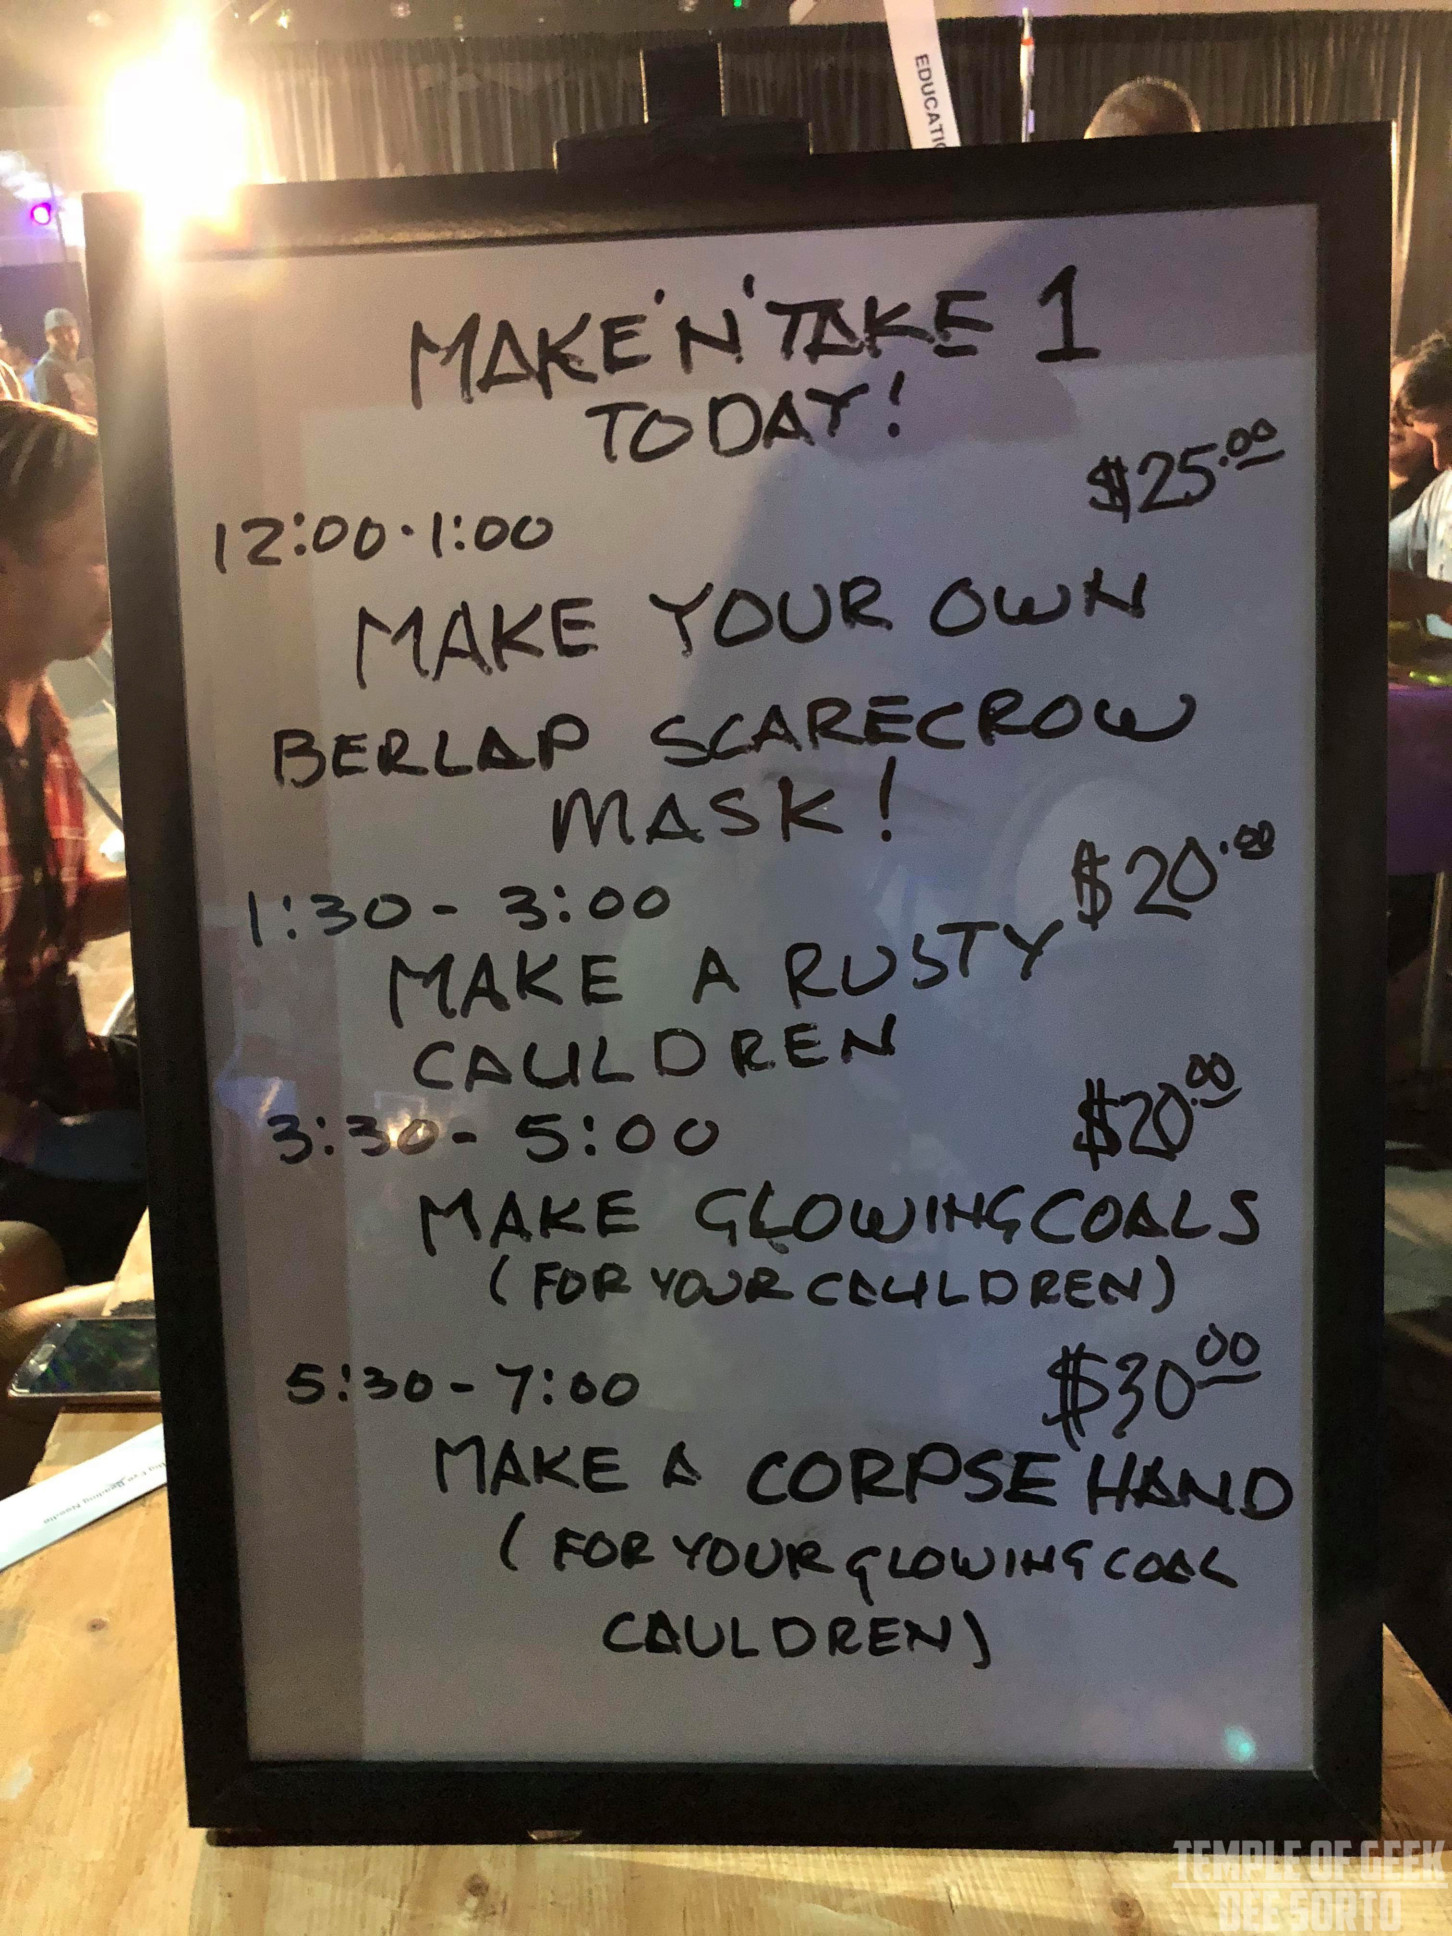 EDUCATI
MAKE 'N' TAKE 1
TODAY!
$25.00
12:00-1:00
MAKE YOUR OWN
BERLAP SCARECROW
MASK!
$20.00
1:30-3:00
MAKE A RUSTY
CAULDREN
3:30-5:00 $20.00
MAKE GLOWING COALS
(FOR YOUR CAULDREN)
5:30-7:00 $30.00
MAKE A CORPSE HAND
(FOR YOUR GLOWING COAL
CAULDREN)
TEMPLE OF GEEK
DEE SORTO